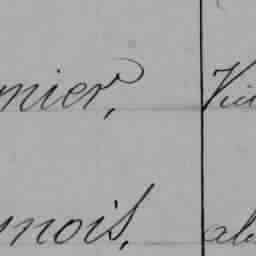 mier, Vic
nois, ab